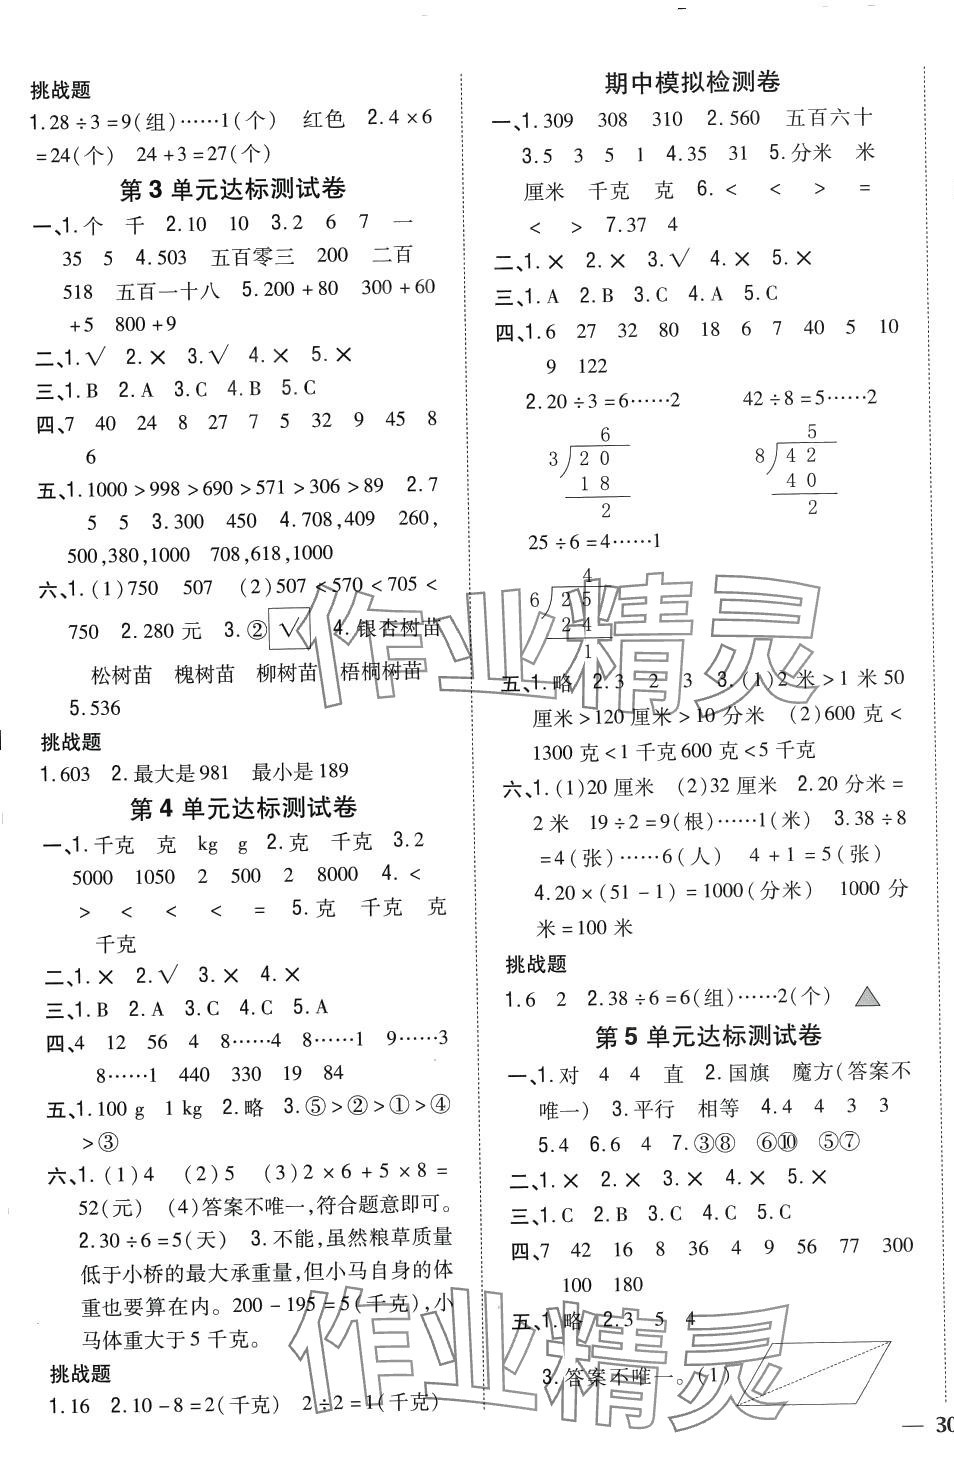 挑战题
1.28÷3=9(组)……1(个) 红色 2.4×6
=24(个) 24+3=27(个)
第3单元达标测试卷
一、1.个 千 2.10 10 3.2 6 7 一
35 5 4.503 五百零三 200 二百
518 五百一十八 5.200+80 300+60
+5 800+9
二、1.√ 2.× 3.√ 4.× 5.×
三、1.B 2.A 3.C 4.B 5.C
四、7 40 24 8 27 7 5 32 9 45 8
6
五、1.1000>998>690>571>306>89 2.7
5 5 3.300 450 4.708,409 260,
500,380,1000 708,618,1000
六、1.(1)750 507 (2)507<570<705<
750 2.280元 3.② √ 4.银杏树苗
松树苗 槐树苗 柳树苗 梧桐树苗
5.536
挑战题
1.603 2.最大是981 最小是189
第4单元达标测试卷
一、1.千克 克 kg g 2.克 千克 3.2
5000 1050 2 500 2 8000 4.<
> < < < = 5.克 千克 克
千克
二、1.× 2.√ 3.× 4.×
三、1.B 2.A 3.C 4.C 5.A
四、4 12 56 4 8……4 8……1 9……3
8……1 440 330 19 84
五、1.100 g 1 kg 2.略 3.⑤>②>①>④
>③
六、1.(1)4 (2)5 (3)2×6+5×8=
52(元) (4)答案不唯一,符合题意即可。
2.30÷6=5(天) 3.不能,虽然粮草质量
低于小桥的最大承重量,但小马自身的体
重也要算在内。200-195=5(千克),小
马体重大于5千克。
挑战题
1.16 2.10-8=2(千克) 2÷2=1(千克)
期中模拟检测卷
一、1.309 308 310 2.560 五百六十
3.5 3 5 1 4.35 31 5.分米 米
厘米 千克 克 6.< < > =
< > 7.37 4
二、1.× 2.× 3.√ 4.× 5.×
三、1.A 2.B 3.C 4.A 5.C
四、1.6 27 32 80 18 6 7 40 5 10
9 122
2.20÷3=6……2 42÷8=5……2
6 5
3 20 8 42
18 40
2 2
25÷6=4……1
4
6 25
24
1
五、1.略 2.3 2 3 3.(1)2米>1米50
厘米>120厘米>10分米 (2)600克<
1300克<1千克600克<5千克
六、1.(1)20厘米 (2)32厘米 2.20分米=
2米 19÷2=9(根)……1(米) 3.38÷8
=4(张)……6(人) 4+1=5(张)
4.20×(51-1)=1000(分米) 1000分
米=100米
挑战题
1.6 2 2.38÷6=6(组)……2(个)
第5单元达标测试卷
一、1.对 4 4 直 2.国旗 魔方(答案不
唯一) 3.平行 相等 4.4 4 3 3
5.4 6.6 4 7.③⑧ ⑥⑩ ⑤⑦
二、1.× 2.× 3.× 4.× 5.×
三、1.C 2.B 3.C 4.C 5.C
四、7 42 16 8 36 4 9 56 77 300
100 180
五、1.略 2.3 5 4
3.答案不唯一。(1)
— 30
作业精灵
作业精灵